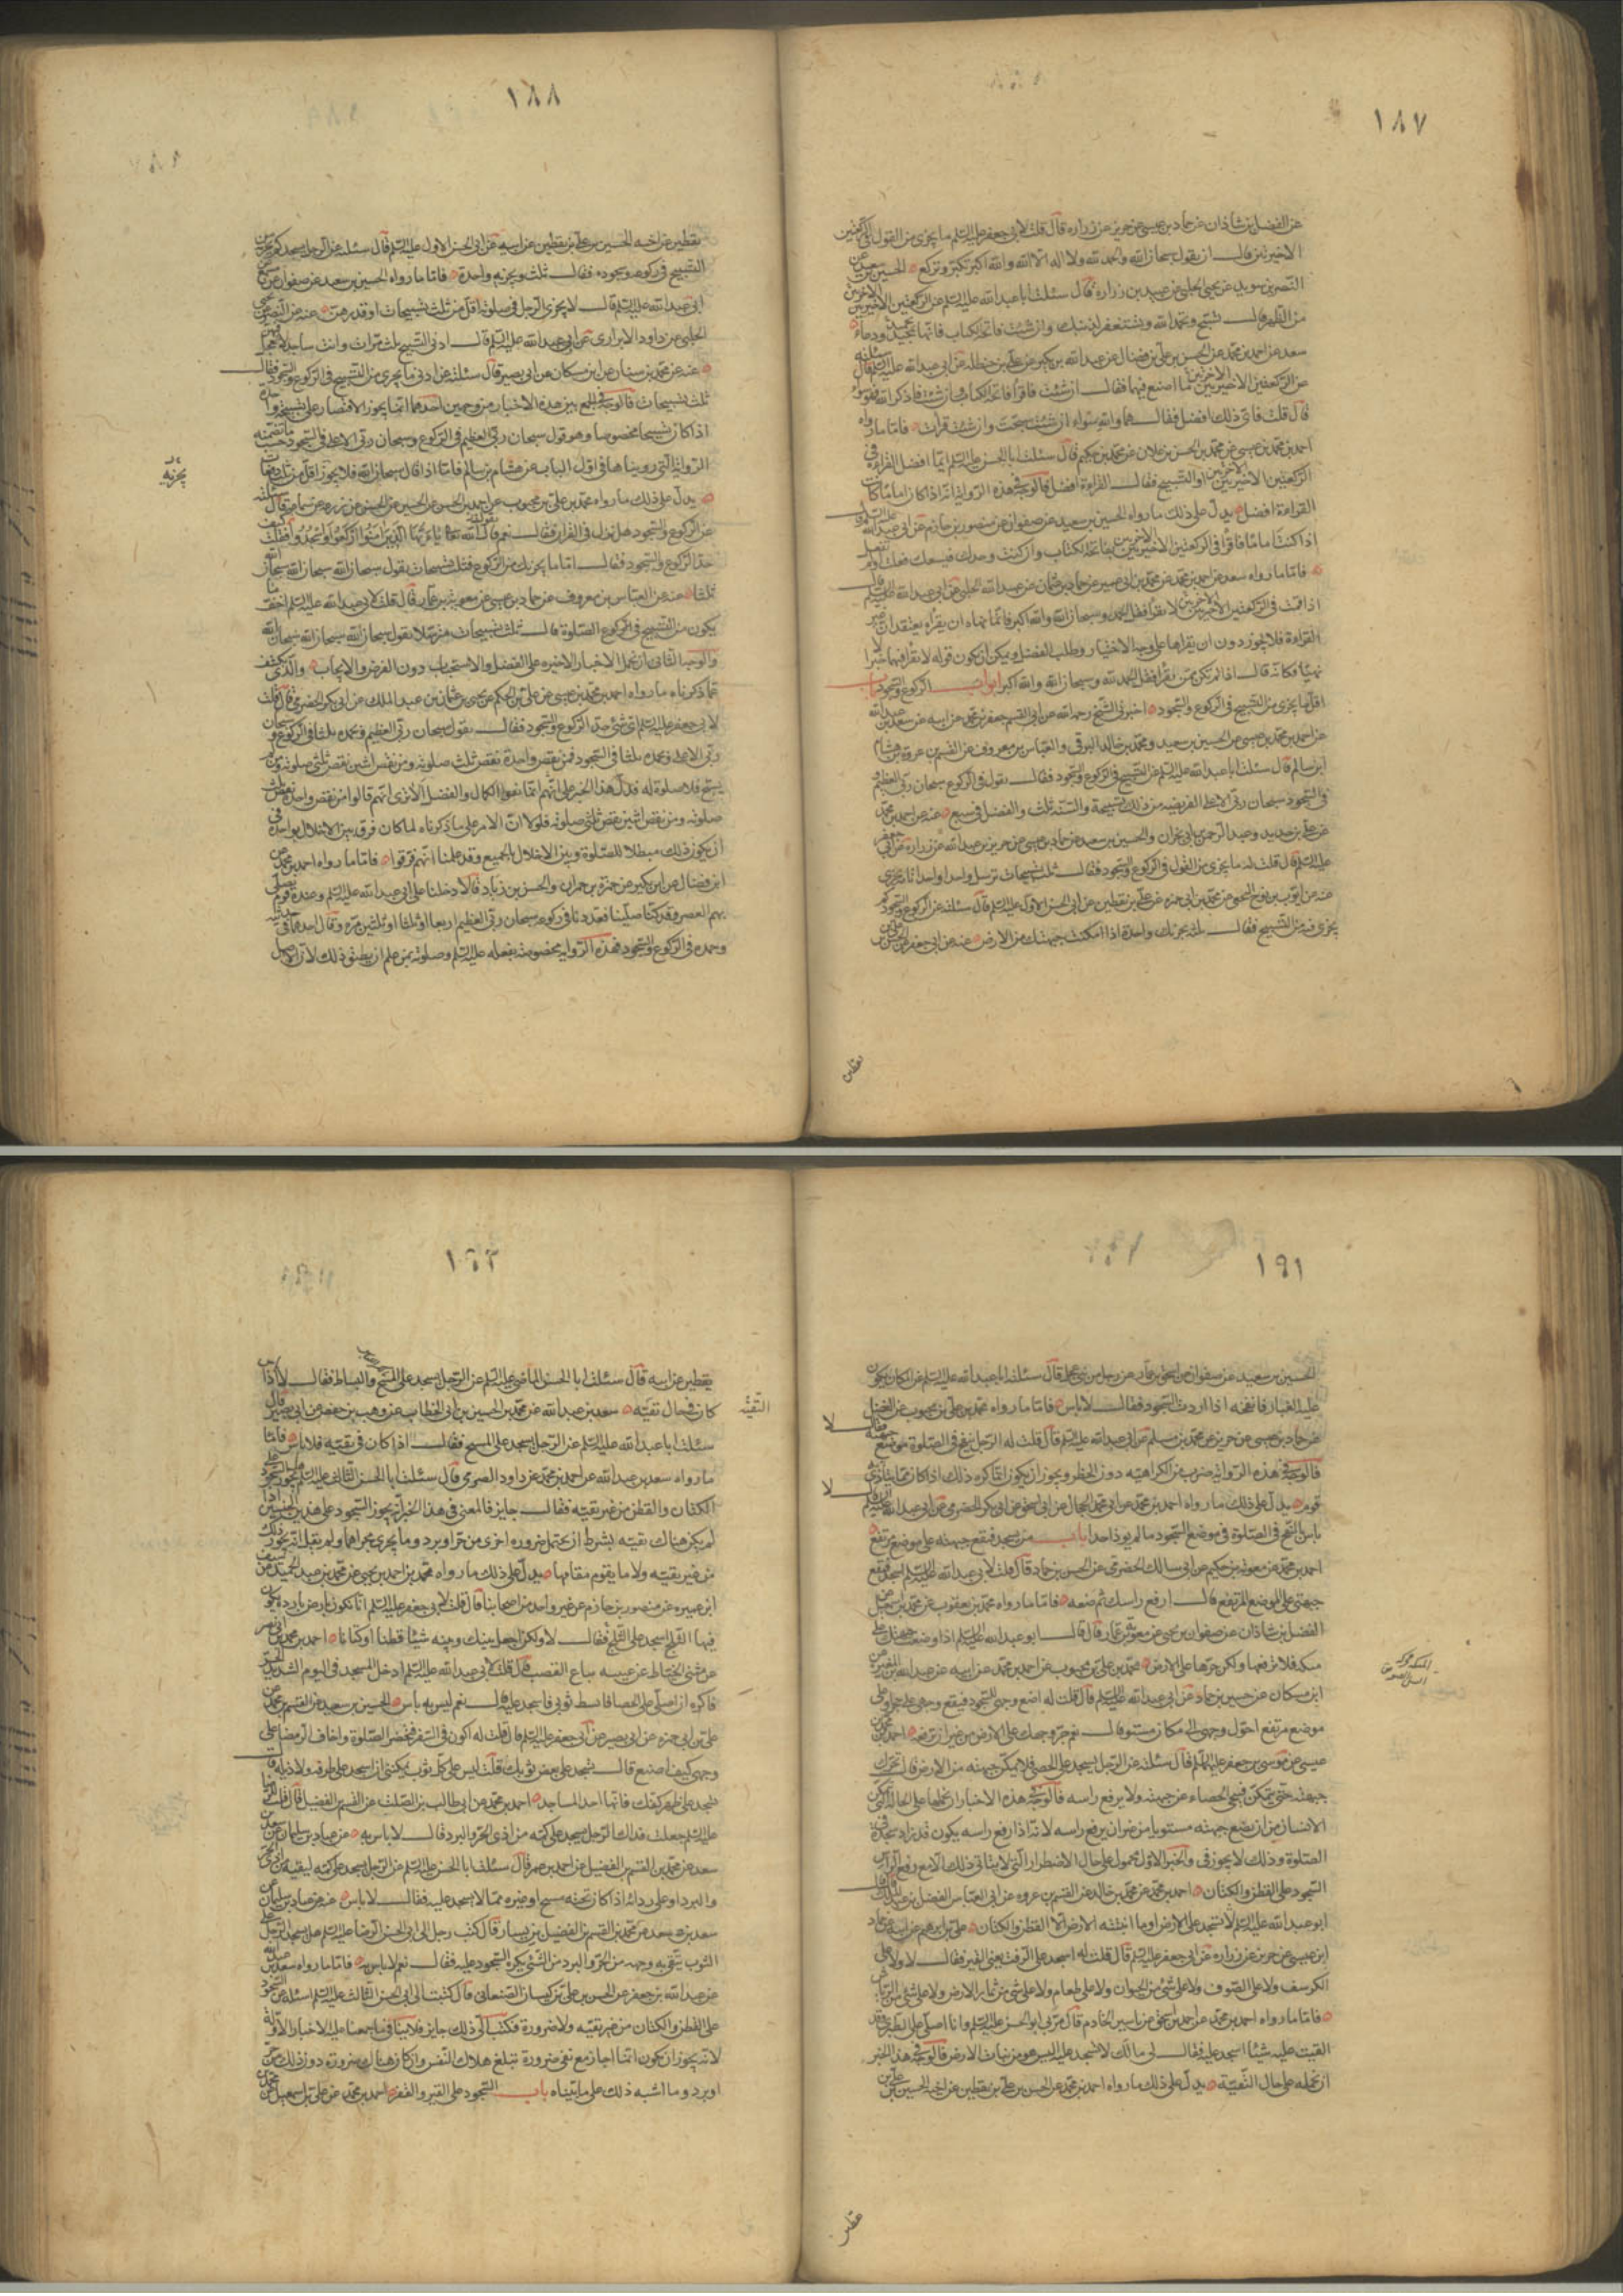 ١٨٧
عن الفضل بن شاذان عن حماد بن عيسى عن حريز عن زراره قال قلت لابى جعفر عليه السلم ما يجزى من القول فى الركعتين
الاخيرتين قال ان يقول سبحان الله والحمد لله ولا اله الا الله والله اكبر تكبر وتركع الحسين بن سعيد عن
النضر بن سويد عن يحيى الحلبى عن عبيد بن زرارة قال سئلت ابا عبد الله عليه السلم عن الركعتين الاخيرتين
من الظهر قال تسبح وتحمد الله وتستغفر لذنبك وان شئت فاتحة الكتاب فانها تحميد ودعاء
سعد عن احمد بن محمد عن الحسن بن على بن فضال عن عبد الله بن بكير عن على بن حنظله عن ابى عبد الله عليه السلم قال سئلته
عن الركعتين الاخيرتين ما اصنع فيهما فقال ان شئت فاقرأ فاتحة الكتاب وان شئت فاذكر الله فهو سواء
قال قلت فاى ذلك افضل فقال هما والله سواء ان شئت سبحت وان شئت قرات فاما ما رواه
احمد بن محمد بن عيسى عن محمد بن الحسن بن علان عن محمد بن حكيم قال سئلت ابا الحسن عليه السلم ايما افضل القراءة فى
الركعتين الاخيرتين او التسبيح فقال القراءة افضل فالوجه فى هذه الرواية انه اذا كان اماما كانت
القراءة افضل يدل على ذلك ما رواه الحسين بن سعيد عن صفوان عن منصور بن حازم عن ابى عبد الله عليه السلم قال
اذا كنت اماما فاقرأ فى الركعتين الاخيرتين بفاتحة الكتاب وان كنت وحدك فيسعك فعلت او لم تفعل
فاما ما رواه سعد عن احمد بن محمد عن محمد بن ابى عمير عن حماد بن عثمان عن عبيد الله الحلبى عن ابى عبد الله عليه السلم قال
اذا قمت فى الركعتين الاخيرتين لا تقرأ فقل الحمد لله وسبحان الله والله اكبر فانما نهاه ان يقرأه يعتقد ان غير
القراءة فلا يجوز دون ان يقراها على وجه الاختيار وطلب الفضل ويمكن ان يكون قوله لا تقرأ فيهما خبرا لا
نهيا فكانه قال اذا لم تكن ممن تقرأ فقل الحمد لله وسبحان الله والله اكبر ابواب الركوع والسجود باب
اقل ما يجزى من التسبيح فى الركوع والسجود اخبرنى الشيخ رحمه الله عن ابى القسم جعفر بن محمد عن ابيه عن سعد بن عبد الله
عن احمد بن محمد بن عيسى عن الحسين بن سعيد ومحمد بن خالد البرقى والعباس بن معروف عن القسم بن عروة عن هشام
ابن سالم قال سئلت ابا عبد الله عليه السلم عن التسبيح فى الركوع والسجود فقال يقول فى الركوع سبحان ربى العظيم و
فى السجود سبحان ربى الاعلى الفريضه من ذلك تسبيحة والسنة ثلث والفضل فى سبع عنه عن احمد بن محمد
عن على بن حديد وعبد الرحمن بن ابى نجران والحسين بن سعيد عن حماد بن عيسى عن حريز بن عبد الله عن زرارة عن ابى جعفر
عليه السلم قال قلت له ما يجزى من القول فى الركوع والسجود فقال ثلث تسبيحات فى ترسل وواحدة تامة تجزى
عنه عن ايوب بن نوح النخعى عن محمد بن ابى حمزه عن على بن يقطين عن ابى الحسن الاول عليه السلم قال سئلته عن الركوع والسجود كم
يجزى فيه من التسبيح فقال ثلثة وتجزيك واحدة اذا امكنت جبهتك من الارض عنه عن ابى جعفر عن الحسن بن على بن
يقطين
١٨٨
يقطين عن اخيه الحسين بن على بن يقطين عن ابيه عن ابى الحسن الاول عليه السلم قال سئلته عن الرجل يسجد كم يجزيه من
التسبيح فى ركوعه وسجوده فقال ثلث وتجزيه واحدة فاما ما رواه الحسين بن سعيد عن صفوان عن مسكان عن
ابى عبد الله عليه السلم قال لا يجزى الرجل فى صلوته اقل من ثلث تسبيحات او قدرهن عنه عن النضر عن يحيى
الحلبى عن داود الابزارى عن ابى عبد الله عليه السلم قال ادنى التسبيح ثلث مرات وانت ساجد لا تعجل بهن
عنه عن محمد بن سنان عن ابن مسكان عن ابى بصير قال سئلته عن ادنى ما يجزى من التسبيح فى الركوع والسجود فقال
ثلث تسبيحات فالوجه فى الجمع بين هذه الاخبار من وجهين احدهما انما يجوز الاقتصار على تسبيحة واحدة
اذا كان تسبيحا مخصوصا وهو قول سبحان ربى العظيم فى الركوع وسبحان ربى الاعلى فى السجود حسب ما تضمنته
الرواية التى رويناها فى اول الباب عن هشام بن سالم فاما اذا قال سبحان الله فلا يجوز اقل من ثلث دفعات
يدل على ذلك ما رواه محمد بن على بن محبوب عن احمد بن الحسن عن الحسين عن الحسن عن زرعه عن سماعه قال سئلته
عن الركوع والسجود هل نزل فى القران فقال نعم قال الله تعالى يا ايها الذين امنوا اركعوا واسجدوا فقلت كيف
حد الركوع والسجود فقال اما ما يجزيك من الركوع فثلث تسبيحات يقول سبحان الله سبحان الله سبحان الله
ثلثا عنه عن العباس بن معروف عن حماد بن عيسى عن معوية بن عمار قال قلت لابى عبد الله عليه السلم اخف ما
يكون من التسبيح فى الركوع الصلوة قال ثلث تسبيحات مترسلا يقول سبحان الله سبحان الله سبحان الله
والوجه الثانى ان نحمل الاخبار الاخيره على الفضل والاستحباب دون الفرض والايجاب والذى يكشف
عما ذكرناه ما رواه احمد بن محمد بن عيسى عن على بن الحكم عن يحيى عن عثمان بن عبد الملك عن ابى بكر الحضرمى قال قلت
لابى جعفر عليه السلم اى شئ حد الركوع والسجود فقال يقول سبحان ربى العظيم وبحمده ثلثا فى الركوع وسبحان
ربى الاعلى وبحمده ثلثا فى السجود فمن نقص واحدة نقص ثلث صلوته ومن نقص اثنين نقص ثلثى صلوته ومن لم
يسبح فلا صلوة له فدل هذا الخبر على انهم انما نفوا الكمال والفضل الا ترى انهم قالوا من نقص واحدة نقص ثلث
صلوته ومن نقص اثنين نقص ثلثى صلوته فلولا ان الامر على ما ذكرناه لما كان فرق بين الاخلال بواحدة فى
ان يكون ذلك مبطلا للصلوة وبين الاخلال بالجميع وقد علمنا انهم فرقوا فاما ما رواه احمد بن محمد عن
ابن فضال عن ابن بكير عن حمزة بن حمران والحسن بن زياد قالا دخلنا على ابى عبد الله عليه السلم وعنده قوم يصلى
بهم العصر وقد كنا صلينا فعددنا فى ركوعه سبحان ربى العظيم اربعا او ثلثا او ثلثين مره وقال احدهما فى حديثه
وبحمده فى الركوع والسجود فهذه الرواية مخصوصة بفعله عليه السلم وصلوته بمن علم انه يطيق ذلك لان الاصل
يجزيه
١٩١
الحسين بن سعيد عن صفوان عن اسحق بن عمار عن رجل من بنى عجل قال سئلت ابا عبد الله عليه السلم عن المكان يكون
عليه الغبار فانفخه اذا اردت السجود فقال لا باس فاما ما رواه محمد بن على بن محبوب عن الفضل
عن حماد بن عيسى عن حريز عن محمد بن مسلم عن ابى عبد الله عليه السلم قال قلت له الرجل ينفخ فى الصلوة موضع جبهته فقال لا
فالوجه فى هذه الرواية ضرب من الكراهيه دون الحظر ويجوز ان يكون انما كره ذلك اذا كان مما يتأذى به
قوم يدل على ذلك ما رواه احمد بن محمد عن ابى محمد الحجال عن ابى اسحق عن ابى بكر الحضرمى عن ابى عبد الله عليه السلم قال لا
باس بالنفخ فى الصلوة فى موضع السجود ما لم يوذ احدا باب من يسجد فيقع جبهته على موضع مرتفع
احمد بن محمد عن معوية بن حكيم عن ابى مالك الحضرمى عن الحسن بن حماد قال قلت لابى عبد الله عليه السلم اسجد فتقع
جبهتى على الموضع المرتفع قال ارفع راسك ثم ضعه فاما ما رواه محمد بن يعقوب عن محمد بن اسمعيل عن
الفضل بن شاذان عن صفوان بن يحيى عن معوية بن عمار قال قال ابو عبد الله عليه السلم اذا وضعت جبهتك على
نبكه فلا ترفعها ولكن جرها على الارض محمد بن على بن محبوب عن احمد بن محمد عن ابيه عن عبد الله بن المغيره عن
ابن مسكان عن حسين بن حماد عن ابى عبد الله عليه السلم قال قلت له اضع وجهى للسجود فيقع وجهى على حجر او على
موضع مرتفع احول وجهى الى مكان مستو قال نعم جر وجهك على الارض من غير ان ترفعه احمد بن محمد بن
عيسى عن موسى بن جعفر عليهما السلم قال سئلته عن الرجل يسجد على الحصى فلا يمكن جبهته من الارض قال يحرك
جبهته حتى يتمكن فينحى الحصاء عن جبهته ولا يرفع راسه فالوجه فى هذه الاخبار ان نحملها على الحال التى يتمكن
الانسان من ان يضع جبهته مستويا من غير ان يرفع راسه لانه اذا رفع راسه يكون قد زاد سجدة فى
الصلوة وذلك لا يجوز فى والخبر الاول محمول على حال الاضطرار التى لا يتاتى ذلك الا مع رفع الراس
السجود على القطن والكتان احمد بن محمد عن محمد بن خالد عن القسم بن عروه عن ابى العباس الفضل بن عبد الملك قال قال
ابو عبد الله عليه السلم لا تسجد على الارض او ما انبتته الارض الا القطن والكتان على بن ابرهيم عن ابيه عن حماد
ابن عيسى عن حريز عن زراره عن ابى جعفر عليه السلم قال قلت له اسجد على الزفت يعنى القير فقال لا ولا على
الكرسف ولا على الصوف ولا على شئ من الحيوان ولا على طعام ولا على شئ من ثمار الارض ولا على شئ من الرياش
فاما ما رواه احمد بن محمد عن احمد بن اسحق عن ياسر الخادم قال مر بى ابو الحسن عليه السلم وانا اصلى على الطبرى وقد
القيت عليه شيئا اسجد عليه فقال لى مالك لا تسجد عليه اليس هو من نبات الارض فالوجه فى هذا الخبر
ان نحمله على حال التقية يدل على ذلك ما رواه احمد بن محمد عن الحسن بن على بن يقطين عن اخيه الحسين عن على بن
يقطين
١٩٢
يقطين عن ابيه قال سئلت ابا الحسن الماضى عليه السلم عن الرجل يسجد على المسح والبساط فقال لا باس اذا
كان فى حال تقيه سعد بن عبد الله عن محمد بن الحسين بن ابى الخطاب عن وهيب بن حفص عن ابى بصير قال
سئلت ابا عبد الله عليه السلم عن الرجل يسجد على المسح فقال اذا كان فى تقيه فلا باس فاما
ما رواه سعد بن عبد الله عن احمد بن محمد عن داود الصرمى قال سئلت ابا الحسن الثالث عليه السلم هل يجوز السجود على
الكتان والقطن من غير تقيه فقال جايز فالمعنى فى هذا الخبر انه يجوز السجود على هذين الجنسين اذا
لم يكن هناك تقيه بشرط ان يحتمل ضروره اخرى من حر او برد وما يجرى مجراهما ولم يقل انه يجوز ذلك
من غير تقيه ولا ما يقوم مقامها يدل على ذلك ما رواه محمد بن احمد بن يحيى عن محمد بن عبد الحميد عن سيف
ابن عميره عن منصور بن حازم عن غير واحد من اصحابنا قال قلت لابى جعفر عليه السلم انا نكون بارض باردة يكون
فيها الثلج اسجد على الثلج فقال لا ولكن اجعل بينك وبينه شيئا قطنا او كتانا احمد بن محمد عن
عن مثنى الخياط عن عيينه بياع القصب قال قلت لابى عبد الله عليه السلم ادخل المسجد فى اليوم الشديد الحر
فاكره ان اصلى على الحصا فابسط ثوبى فاسجد عليه قال نعم ليس به باس الحسين بن سعيد عن القسم بن محمد عن
على بن ابى حمزه عن ابى بصير عن ابى جعفر عليه السلم قال قلت له اكون فى السفر فتحضر الصلوة واخاف الرمضا على
وجهى كيف اصنع قال تسجد على بعض ثوبك قلت ليس على كل ثوب يمكننى ان اسجد على طرفه ولا ذيله قال
اسجد على ظهر كفك فانها احد المساجد احمد بن محمد عن ابى طالب بن الصلت عن القسم بن الفضيل قال قلت للرضا
عليه السلم جعلت فداك الرجل يسجد على كمه من اذى الحر والبرد قال لا باس به عن عباد بن سليمان عن
سعد عن محمد بن القسم بن الفضيل عن احمد بن عمر قال سئلت ابا الحسن عليه السلم عن الرجل يسجد على كمه ليقيه من اذى الحر
والبرد او على ردائه اذا كان تحته مسح او غيره مما لا يسجد عليه فقال لا باس عنه عن عباد بن سليمان عن
سعد بن سعد عن محمد بن القسم بن الفضيل بن يسار قال كتب رجل الى ابى الحسن الرضا عليه السلم هل يسجد الرجل على
الثوب يتقى به وجهه من الحر والبرد من الشئ يكره السجود عليه فقال نعم لا باس به فاما ما رواه سعد بن عبد الله
عن عبد الله بن جعفر عن الحسين بن على بن كيسان الصنعانى قال كتبت الى ابى الحسن الثالث عليه السلم اسئله عن السجود
على القطن والكتان من غير تقيه ولا ضرورة فكتب الى ذلك جايز فلا ينافى ما جمعنا عليه الاخبار الاولة
لانه يجوز ان يكون انما اجاز مع نفى ضرورة تبلغ هلاك النفس وان كان هناك ضرورة دون ذلك من حر
او برد وما اشبه ذلك على ما بيناه باب السجود على القير والقفر احمد بن محمد عن على بن اسمعيل عن محمد بن
التقية